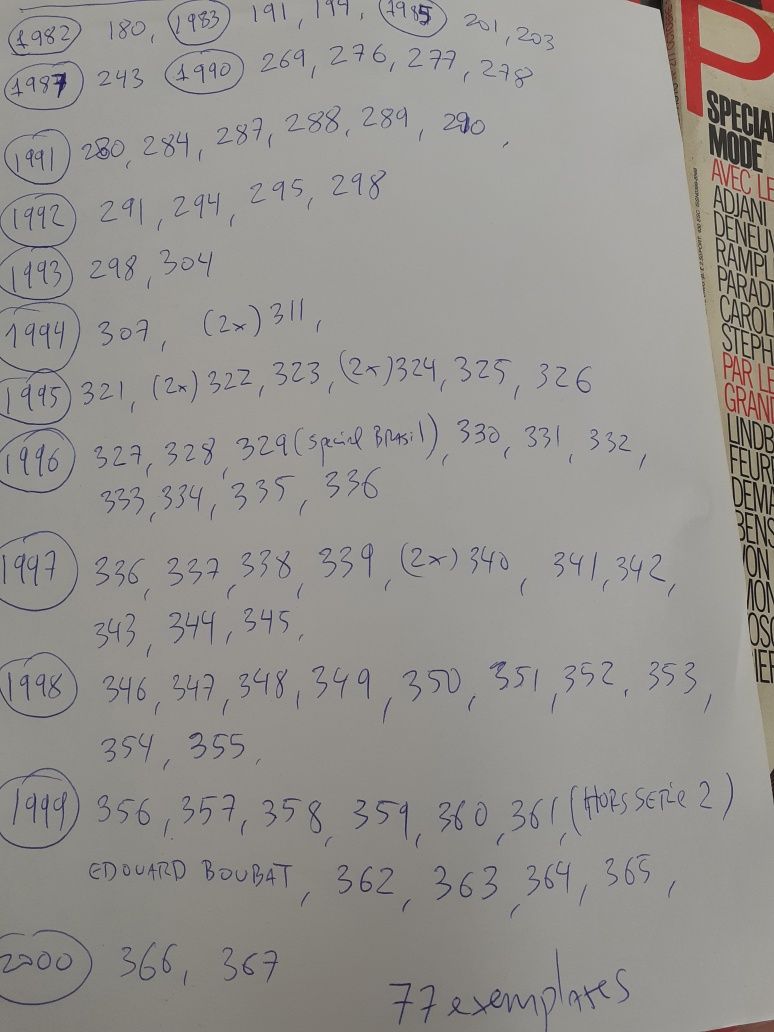 1982 180, 1983 191, 194, 1985 201, 203
1987 243 1990 269, 276, 277, 278
1991 280, 284, 287, 288, 289, 290,
1992 291, 294, 295, 298
1993 298, 304
1994 307, (2x) 311,
1995 321, (2x) 322, 323, (2x) 324, 325, 326
1996 327, 328, 329 (special BRASIL), 330, 331, 332,
333, 334, 335, 336
1997 336, 337, 338, 339, (2x) 340, 341, 342,
343, 344, 345,
1998 346, 347, 348, 349, 350, 351, 352, 353,
354, 355,
1999 356, 357, 358, 359, 360, 361, (HORS SERIE 2)
EDOUARD BOUBAT, 362, 363, 364, 365,
2000 366, 367
77 exemplares
P
SPECIA
MODE
AVEC LE
ADJANI
DENEUV
RAMPL
PARAD
CAROL
STEPH
PAR LE
GRAN
LINDB
FEUR
DEMA
BENS